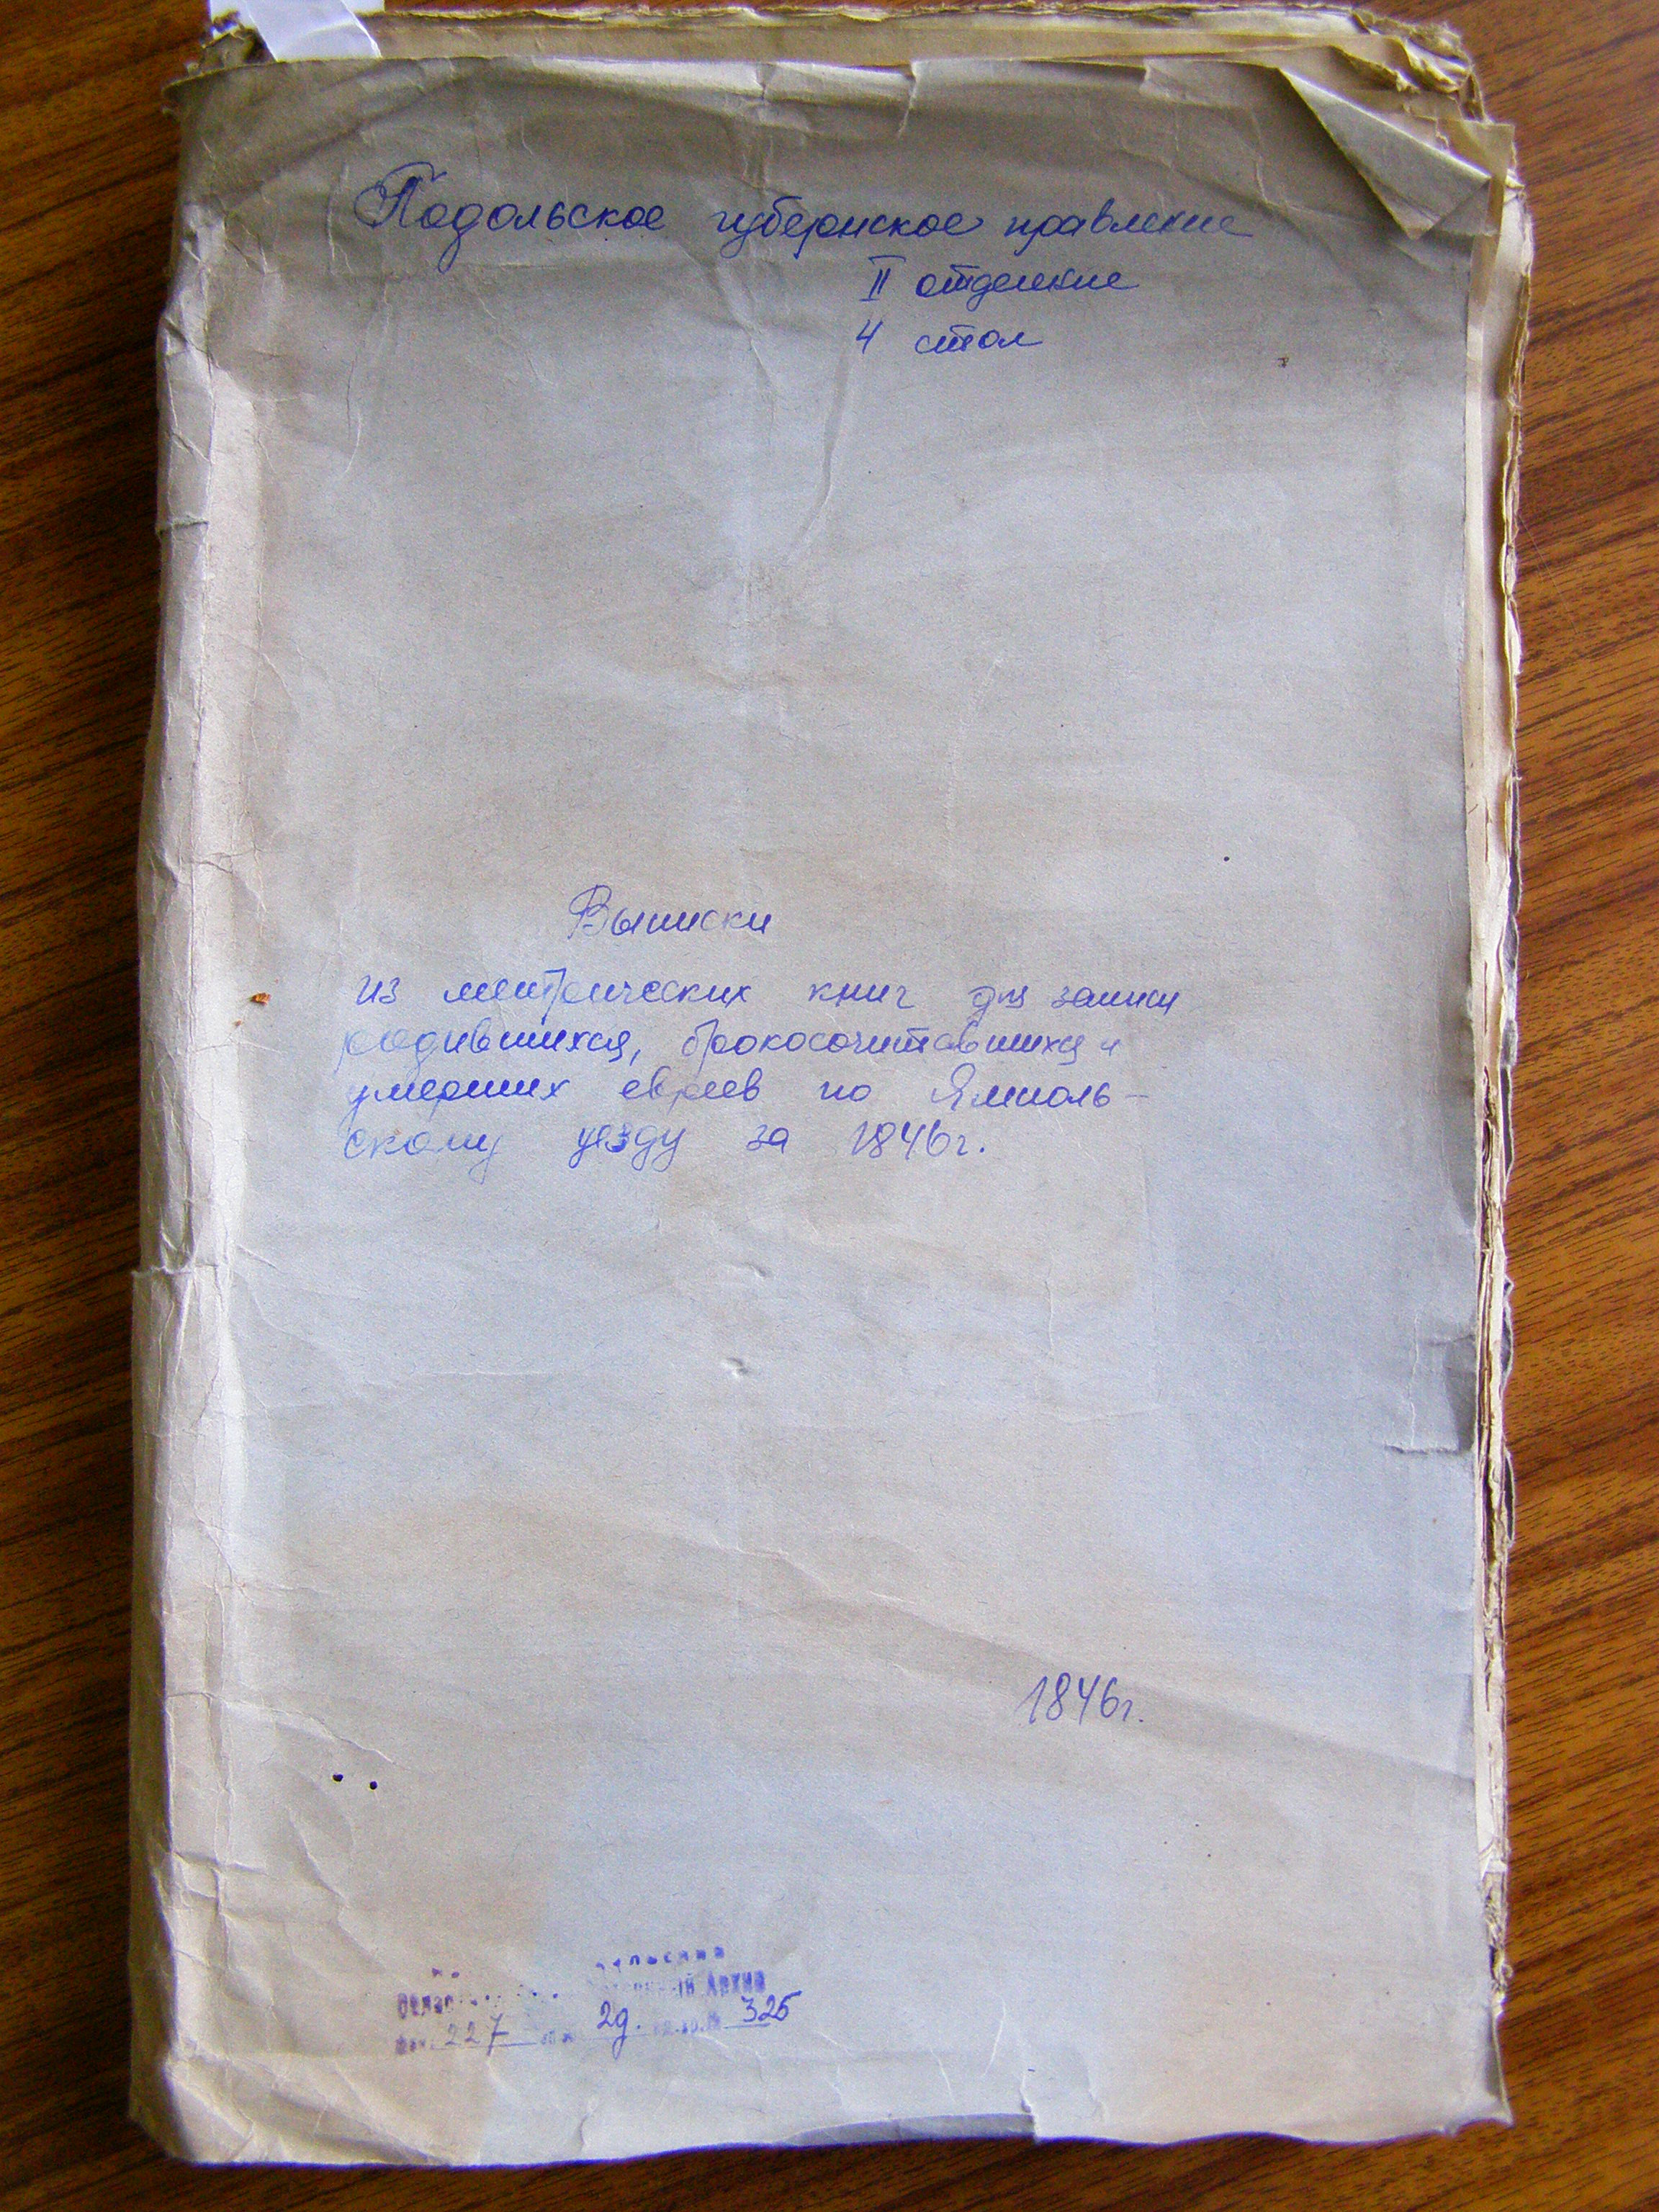 Подольское губернское правление
II отделение
4 стол
Выписки
из метрических книг для записи
родившихся, бракосочитавшихся и
умерших евреев по Ямполь-
скому уезду за 1846г.
1846г.
Архив
227 2д. 325